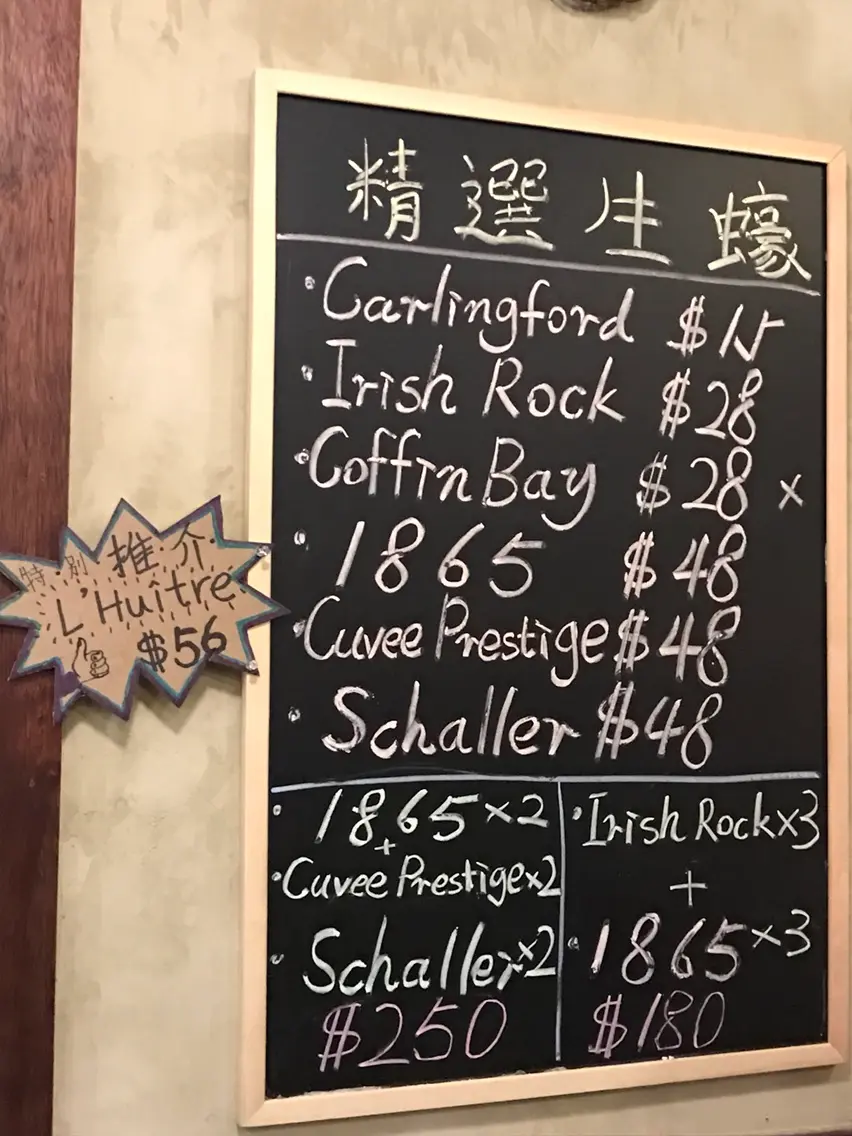 精選生蠔
· Carlingford $15
· Irish Rock $28
· Coffin Bay $28 x
· 1865 $48
· Cuvee Prestige $48
· Schaller $48
· 1865 x2
+
· Cuvee Prestige x2
· Schaller x2
$250
· Irish Rock x3
+
· 1865 x3
$180
特別推介
L'Huître
$56